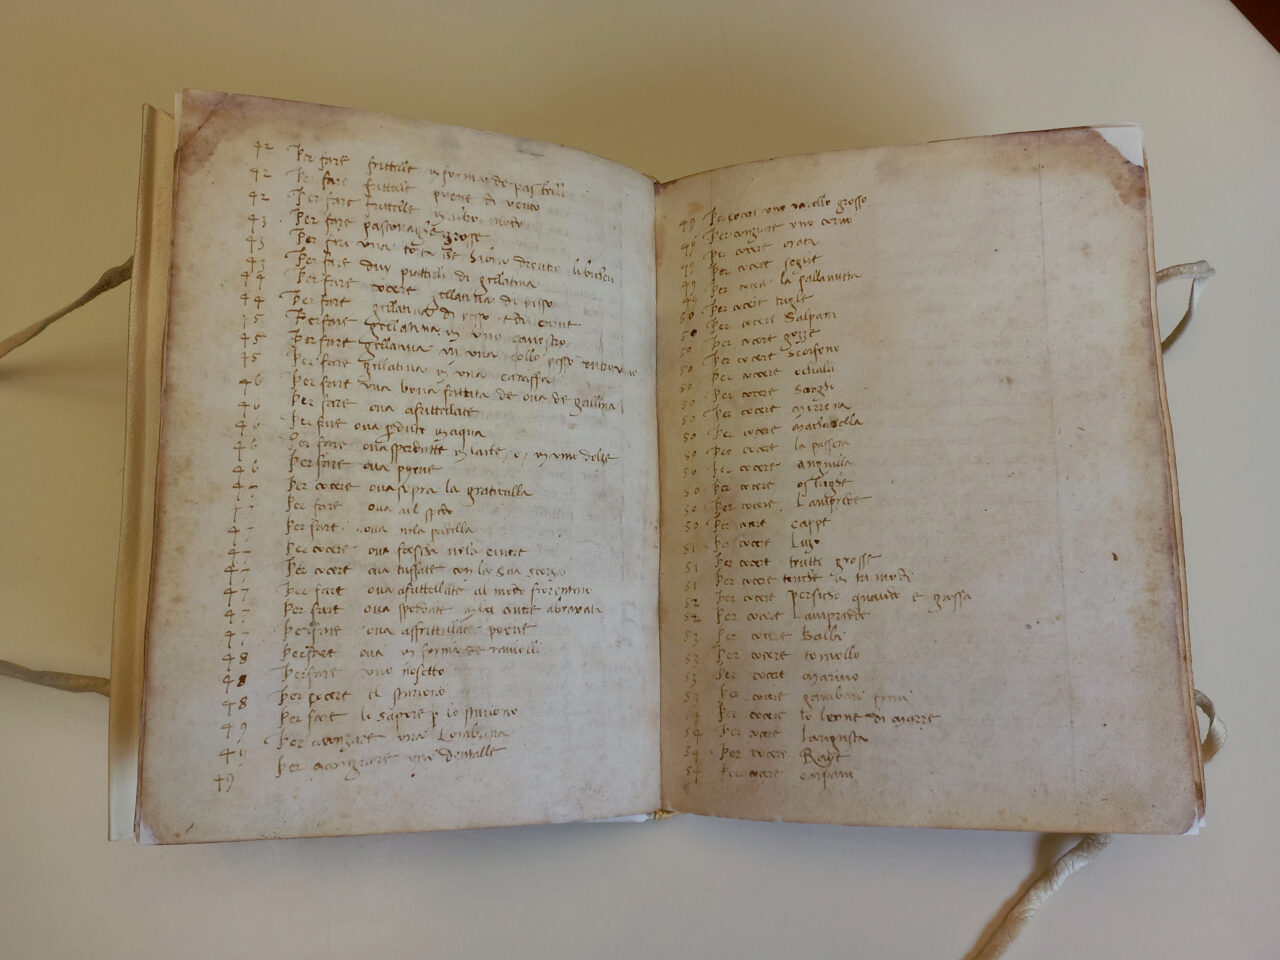 42 Per fare frittelle in forma de pastelli
42 Per fare frittelle piene di vento
42 Per fare frittelle
43 Per fare grosse
43 Per fare una torta che habia drento
43 Per fare duy piattelli di gellatina
44 Per fare o cocere gellatina di pisso
44 Per fare gellatina di pesso
45 Per fare gellatina in uno canestro
45 Per fare gellatina in una
45 Per fare gellatina in una caraffa
46 Per fare una bona frittata de ova de gallina
46 Per fare ova afrittellate
46 Per fare ova perdute in aqua
46 Per fare ova sperdutte in latte, o, in vino dolze
46 Per fare ova pyene
47 Per cocere ova sopra la graticulla
47 Per fare ova al spedo
47 Per fare ova nela padella
47 Per cocere ova fresche nela cinere
47 Per cocere ova tuffate con la sua scorza
47 Per fare ova afrittellate al modo fiorentino
47 Per fare ova
47 Per fare ova affrittellate pyene
48 Per fare ova in forma de raviolli
48 Per fare uno
48 Per cocere el sturiono
49 Per fare lo sapore p lo sturiono
49 Per aconzare una Lombrina
49 Per aconzare uno dentalle
49 Per cocere uno varollo grosso
49 Per conzare uno corvo
49 Per cocere orata
49 Per cocere
49 Per cocere la pallamita
50 Per cocere trigle
50 Per cocere Salpani
50 Per cocere gozze
50 Per cocere Scorfeno
50 Per cocere cefali
50 Per cocere
50 Per cocere morena
50 Per cocere
50 Per cocere la passera
50 Per cocere anguilla
50 Per cocere ostrighe
50 Per cocere Lamprede
50 Per cocere cappe
51 Per cocere Luzo
51 Per cocere trutte grosse
51 Per cocere tenche in tri modi
52 Per cocere persichi quando e grossa
52 Per cocere Lampreda
53 Per cocere Balbi
53 Per cocere tonnollo
53 Per cocere marino
53 Per cocere gambari pieni
54 Per cocere lo leone di marre
54 Per cocere Laragusta
54 Per cocere Raze
54 Per cocere carpani